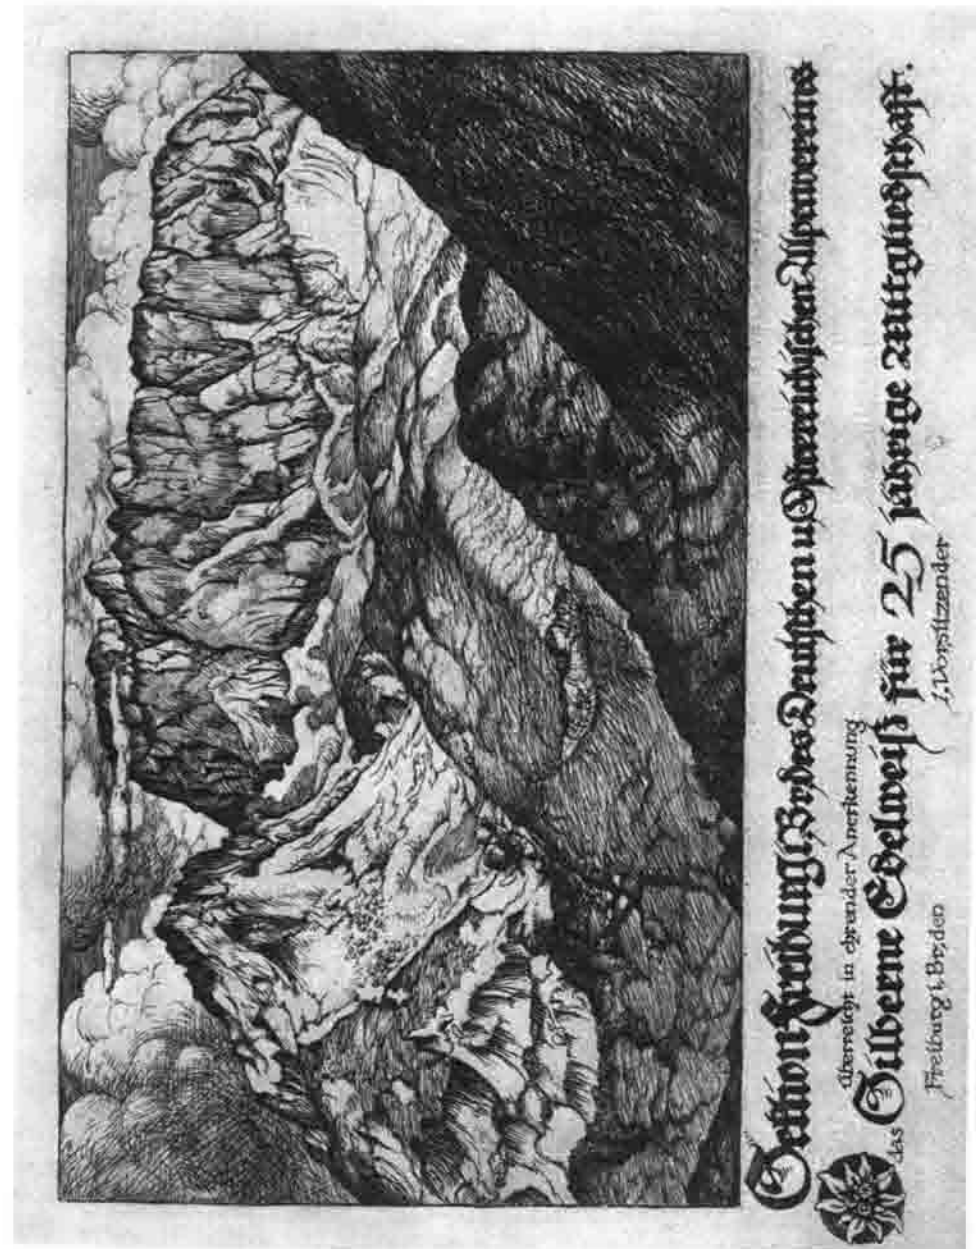 Sektion Freiburg i. Br. des Deutschen u. Österreichischen Alpenvereins
überreicht in ehrender Anerkennung
das Silberne Edelweiß für 25 jährige Mitgliedschaft.
Freiburg i. Br., den
1. Vorsitzender